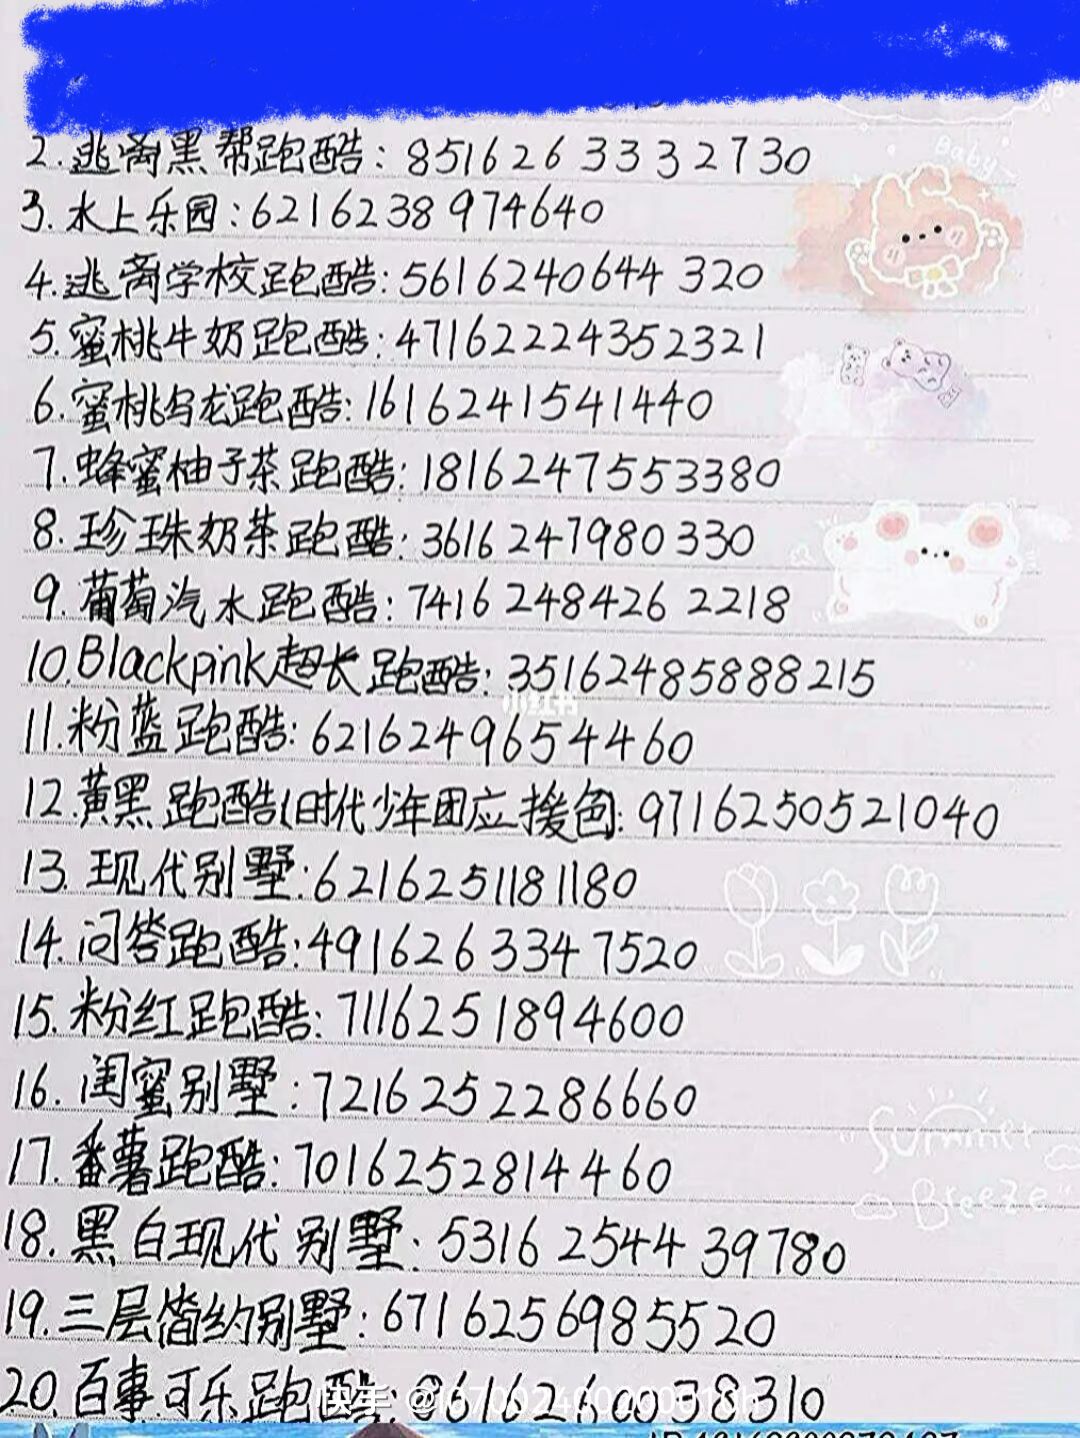 2.逃离黑帮跑酷:851626333 2730
3.水上乐园:6216238974640
4.逃离学校跑酷:5616240644320
5.蜜桃牛奶跑酷:47162224352321
6.蜜桃乌龙跑酷:1616241541440
7.蜂蜜柚子茶跑酷:1816247553380
8.珍珠奶茶跑酷:3616247980330
9.葡萄汽水跑酷:74162484262218
10.Blackpink超长跑酷:35162485888215
11.粉蓝跑酷:6216249654460
12.黄黑跑酷(时代少年团应援色:9716250521040
13.现代别墅:6216251181180
14.问答跑酷:4916263347520
15.粉红跑酷:7116251894600
16.闺蜜别墅:7216252286660
17.番薯跑酷:7016252814460
18.黑白现代别墅:5316254439780
19.三层简约别墅:6716256985520
20.百事可乐跑酷:
Baby
Summer
Breeze
小红书
快手